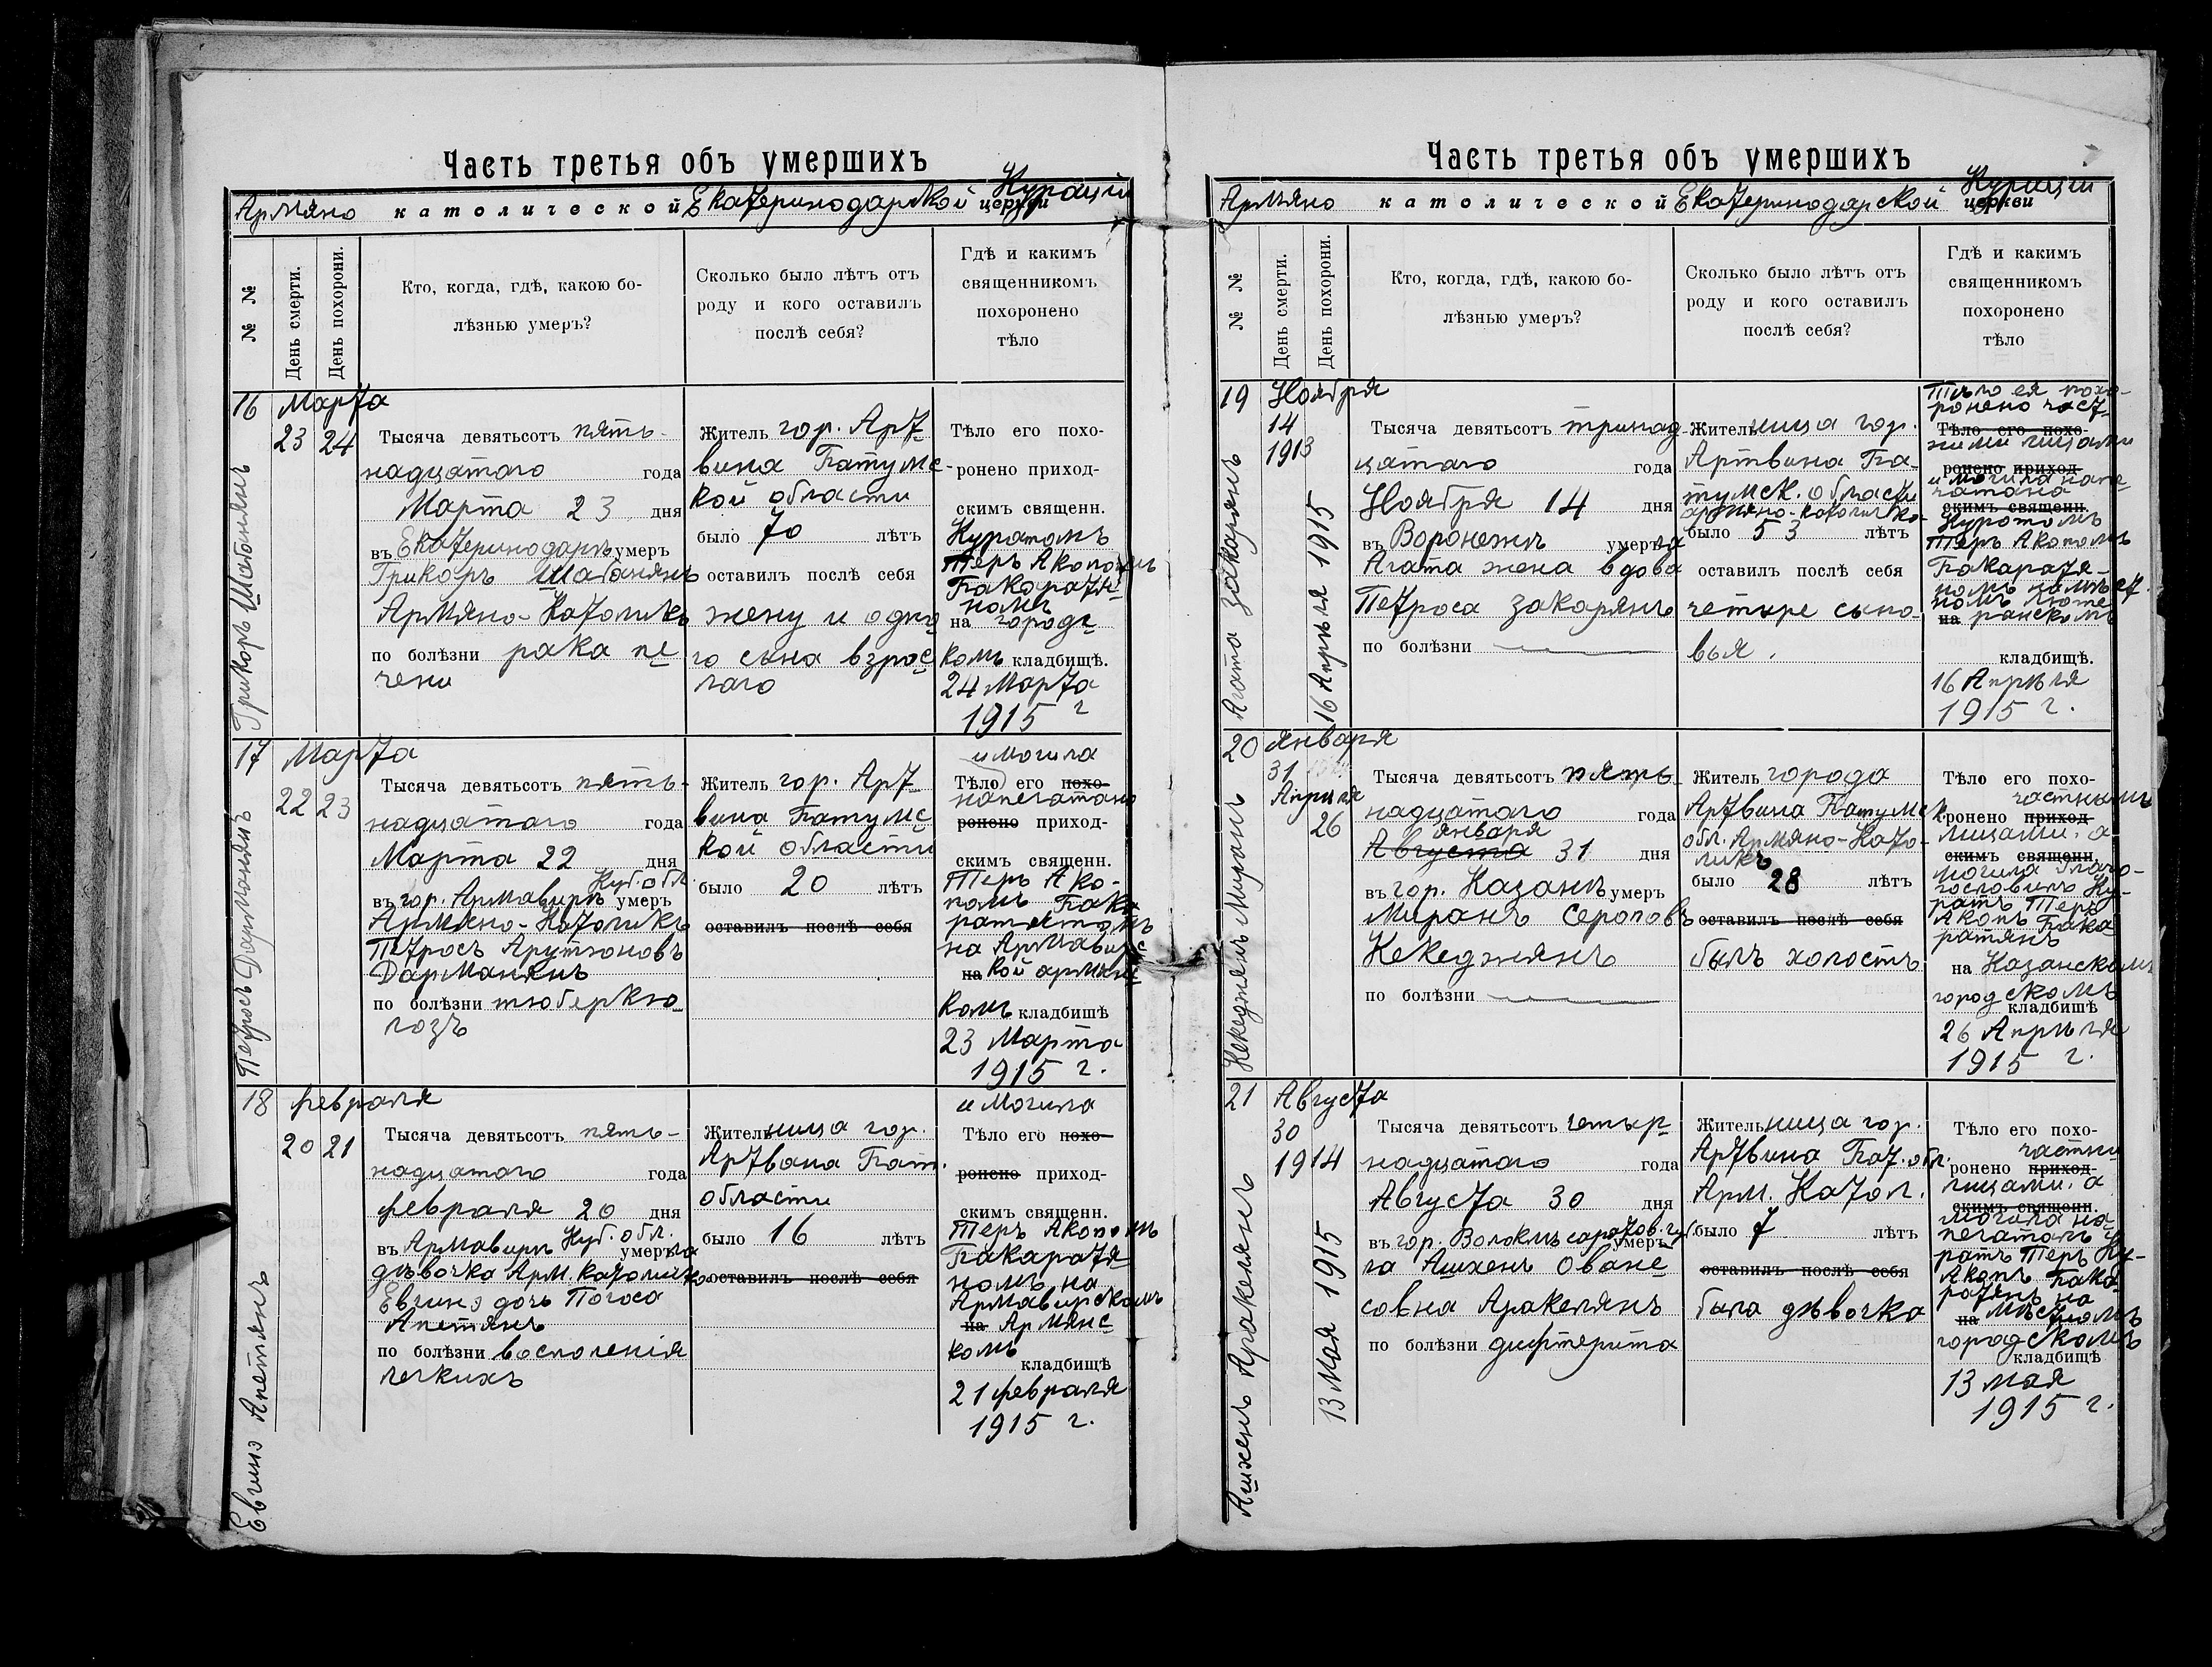 Часть третья объ умершихъ
Армяно католической Екатеринодарской Курации
церкви
№ №
День смерти.
День похорони.
Кто, когда, гдѣ, какою бо-
лѣзнью умеръ?
Сколько было лѣтъ отъ
роду и кого оставилъ
послѣ себя?
Гдѣ и какимъ
священникомъ
похоронено
тѣло
16 Марта
23 24
Григоръ Шабаньянъ
Тысяча девятьсотъ пять-
надцатаго года
Марта 23 дня
въ Екатеринодарѣ умеръ
Григоръ Шабанянъ
Армяно-Католикъ
по болѣзни рака пе
чени
Житель гор. Арт-
вина Батумс-
кой области
было 70 лѣтъ
оставилъ послѣ себя
жену и одно
го сына взрос
лаго
Тѣло его похо-
ронено приход-
скимъ священн.
Куратомъ
Теръ Акопомъ
Бакаратя-
номъ
на городс-
комъ кладбищѣ.
24 Марта
1915 г
17 Марта
22 23
Петросъ Дарманянъ
Тысяча девятьсотъ пять-
надцатаго года
Марта 22 дня
Куб. обл.
въ гор. Армавирѣ умеръ
Армяно-Католикъ
Петросъ Арутюновъ
Дарманянъ
по болѣзни тюберкю
лозъ
Житель гор. Арт-
вина Батумс
кой области
было 20 лѣтъ
оставилъ послѣ себя
и могила
Тѣло его похо-
напечатано
ронено приход-
скимъ священн.
Теръ Ако-
помъ Бака
ратяномъ
на Армавирс
на кой армянс
комъ кладбищѣ
23 Марта
1915 г.
18 февраля
20 21
Евгинэ Апетянъ
Тысяча девятьсотъ пять-
надцатаго года
февраля 20 дня
въ Армавирѣ Куб. обл. умерла
дѣвочка Арм. католичка
Евгинэ дочь Погоса
Апетянъ
по болѣзни воспаленія
легкихъ
Жительница гор.
Артвина Бат.
области
было 16 лѣтъ
оставилъ послѣ себя
и Могила
Тѣло его похо-
ронено приход-
скимъ священн.
Теръ Акопомъ
Бакаратя
номъ на
Армавирскомъ
на Армянс
комъ
кладбищѣ
21 февраля
1915 г.
Часть третья объ умершихъ
Армяно католической Екатеринодарской Курации
церкви
№ №
День смерти.
День похорони.
Кто, когда, гдѣ, какою бо-
лѣзнью умеръ?
Сколько было лѣтъ отъ
роду и кого оставилъ
послѣ себя?
Гдѣ и какимъ
священникомъ
похоронено
тѣло
19 Ноября
14
1913
16 Апрѣля 1915
Агата Закарянъ
Тысяча девятьсотъ тринад
цатаго года
Ноября 14 дня
въ Воронежѣ умерла
Агата жена вдова
Петроса Закарянъ
по болѣзни
Жительница гор.
Артвина Ба-
тумск. области
армяно-католичка
было 53 лѣтъ
оставилъ послѣ себя
четыре сыно-
вья.
Тѣло ея похо-
ронено част-
Тѣло его похо-
ными лицами
ронено приход-
и могила напе-
чатана
скимъ священн.
Куратомъ
Теръ Акопомъ
Бакаратя-
номъ на мѣст.
номъ люте
на ранскомъ
кладбищѣ.
16 Апрѣля
1915 г.
20 Января
31
Апреля
26
Кекеджянъ Миранъ
Тысяча девятьсотъ пять
надцатаго года
Января
Августа 31 дня
въ гор. Казанѣ умеръ
Миранъ Сероповъ
Кекеджянъ
по болѣзни
Житель города
Артвина Батумск.
обл. Армяно-Като-
ликъ
было 28 лѣтъ
оставилъ послѣ себя
былъ холостъ
Тѣло его похо-
частными
ронено приход-
лицами, а
скимъ священн.
могила благо-
гословилъ Ку-
ратъ Теръ
Акопъ Бака
ратянъ
на Казанскомъ
городскомъ
кладбищѣ
26 Апрѣля
1915 г.
21 Августа
30
1914
13 Мая 1915
Ашхенъ Аракелянъ
Тысяча девятьсотъ четыр
надцатаго года
Августа 30 дня
въ гор. Волокмъ Саратов. гу. умеръ
ла Ашхенъ Оване
совна Аракелянъ
по болѣзни дифтерита
Жительница гор.
Артвина Бат. обл.
Арм. Катол.
было 7 лѣтъ
оставилъ послѣ себя
была дѣвочка
Тѣло его похо-
частны
ронено приход-
лицами, а
скимъ священн.
могила на-
печаталъ Ку-
ратъ Теръ
Акопъ Бака
ратянъ на
на мѣстномъ
городскомъ
кладбищѣ
13 мая
1915 г.